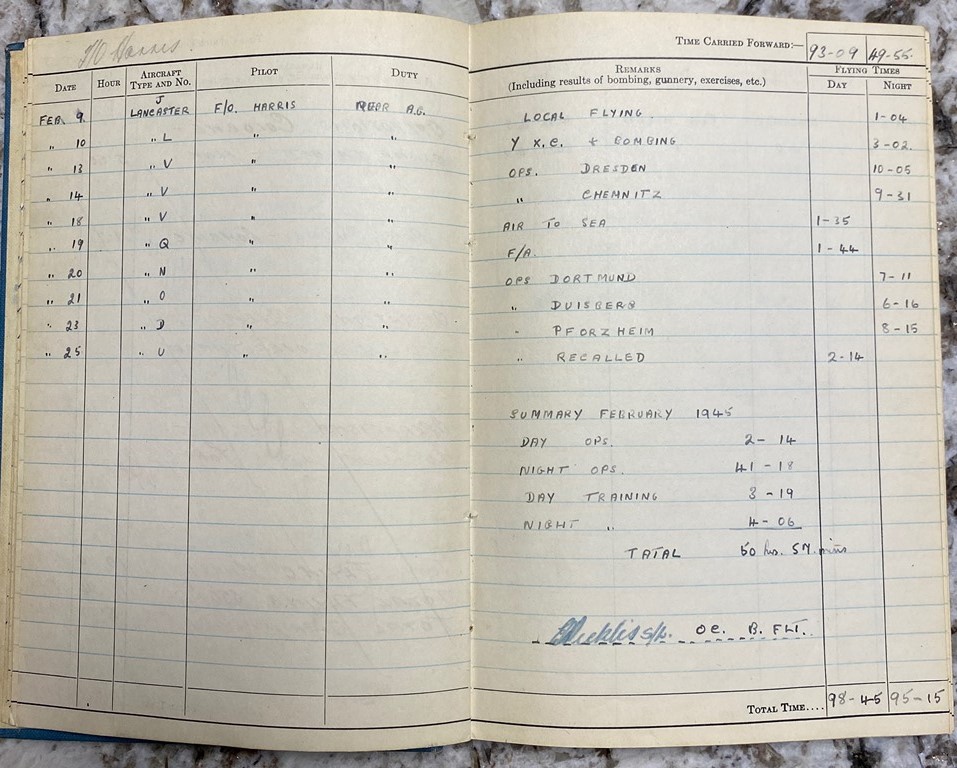 F/O Harris.
TIME CARRIED FORWARD:— 93-09 49-55
DATE HOUR AIRCRAFT TYPE AND NO. PILOT DUTY REMARKS (Including results of bombing, gunnery, exercises, etc.) FLYING TIMES DAY NIGHT
FEB. 9. J LANCASTER F/O. HARRIS REAR A.G. LOCAL FLYING. 1-04
" 10 " L " " Y X.C. + BOMBING 3-02.
" 13 " V " " OPS. DRESDEN 10-05
" 14 " V " " " CHEMNITZ 9-31
" 18 " V " " AIR TO SEA 1-35
" 19 " Q " " F/A. 1-44
" 20 " N " " OPS DORTMUND 7-11
" 21 " O " " " DUISBERG 6-16
" 23 " D " " " PFORZHEIM 8-15
" 25 " U " " " RECALLED 2-14
SUMMARY FEBRUARY 1945
DAY OPS. 2-14
NIGHT OPS. 41-18
DAY TRAINING 3-19
NIGHT " 4-06
TATAL 50 hrs. 57 mins
S/L. OC. B. FLT.
TOTAL TIME.... 98-45 95-15